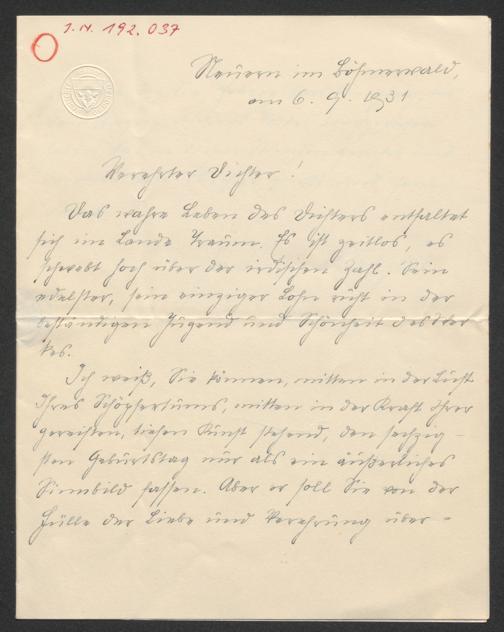 I. N. 192.037
Neuern im Böhmerwald,
am 6. 9. 1931
Verehrter Dichter!
Das wahre Leben des Dichters entfaltet
sich im Lande Traum. Es ist zeitlos, es
schwebt hoch über der irdischen Zahl. Sein
edelster, sein einziger Lohn ruht in der
beständigen Jugend und Schönheit des Wer
kes.
Ich weiß, Sie können, mitten in der Lust
Ihres Schöpfertums, mitten in der Kraft Ihrer
gereiften, hohen Kunst stehend, den sechzig-
sten Geburtstag nur als ein äußerliches
Sinnbild fassen. Aber er soll Sie von der
Fülle der Liebe und Verehrung über-